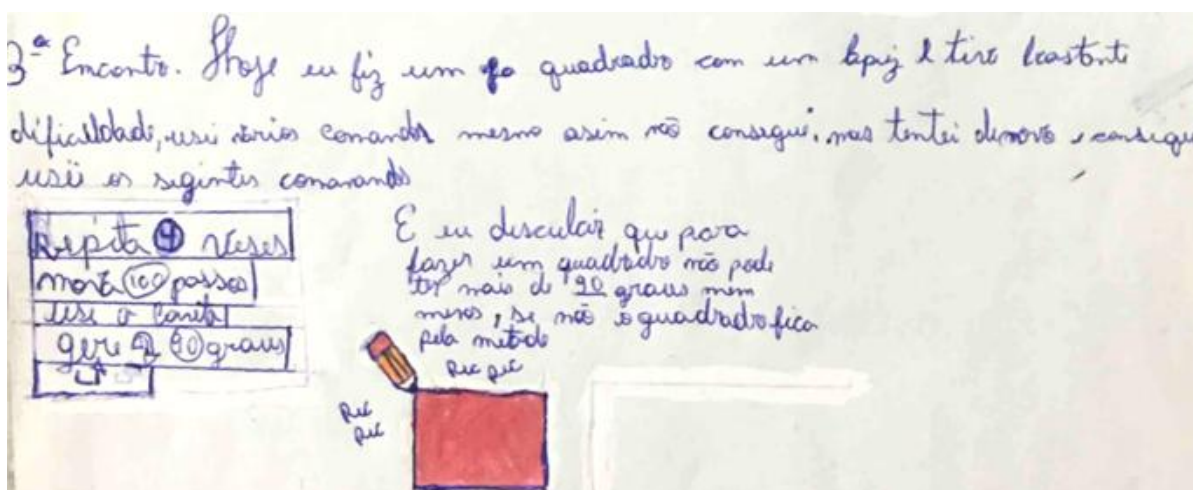 3ª Encontro. Hoje eu fiz um quadrado com um lapiz e tive bastante
dificuldade, usei vários comandos mesmo asim não consegui, mas tentei denovo e consegui
usei os segintes comanandos
Repita 4 veses
mova 100 passos
use a caneta
gire 90 graus
E eu descubri que para
fazer um quadrado não pode
ter mais de 90 graus nem
menos, se não o quadrado fica
pela metade
Ric Ric
Ric
Ric